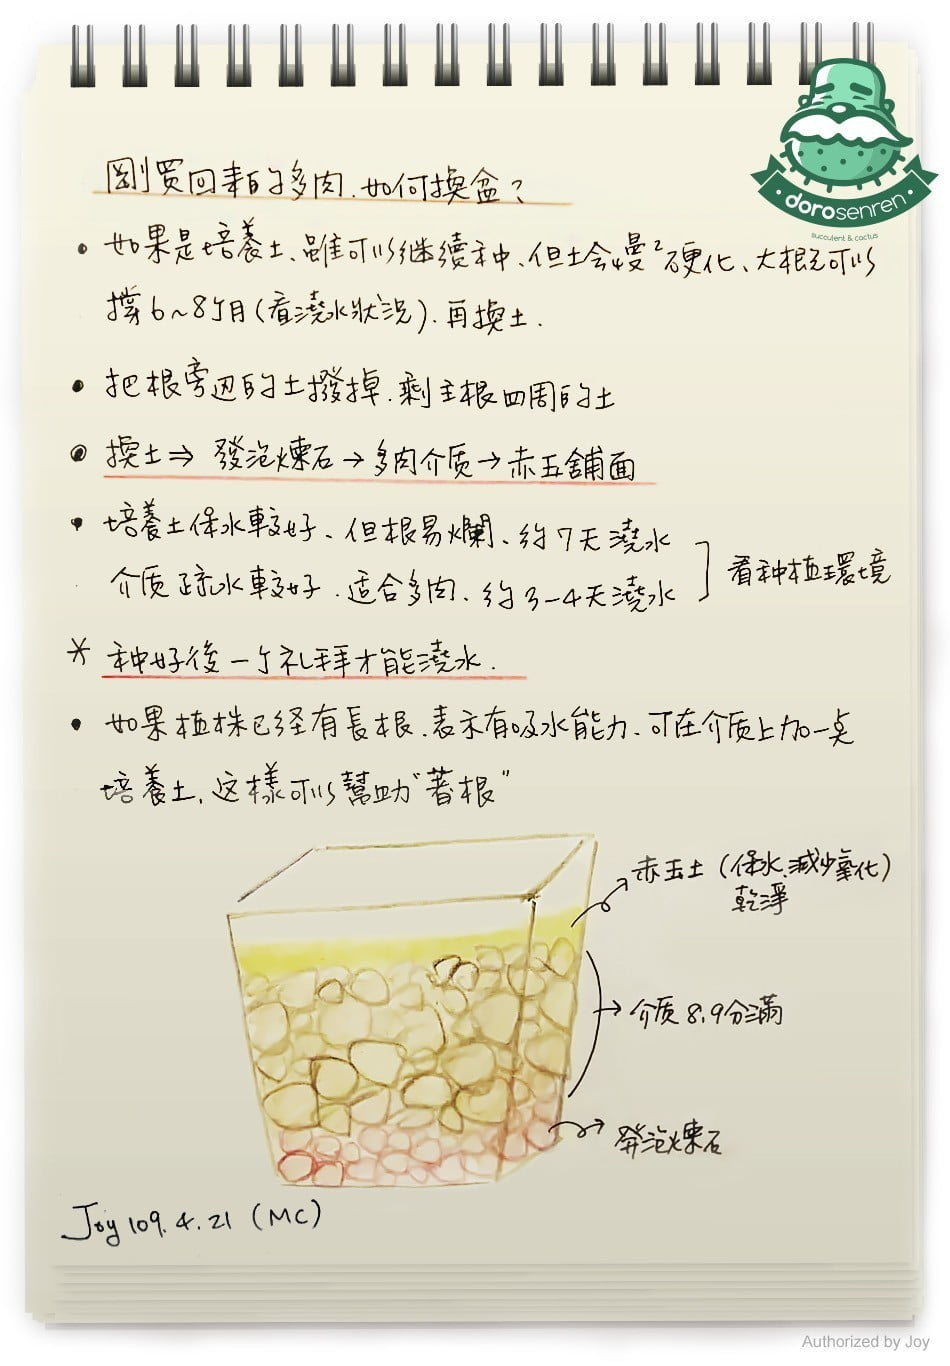 dorosenren
succulent & cactus
剛買回來的多肉、如何換盆?
• 如果是培養土、雖可以继續种、但土会慢²硬化、大概可以
撐6~8個月(看澆水狀況)、再換土.
• 把根旁边的土撥掉、剩主根四周的土
• 換土⇒ 發泡煉石→多肉介质→赤玉舖面
• 培養土保水較好、但根易爛、约7天澆水
介质疏水較好、适合多肉、约3-4天澆水
看种植環境
* 种好後一个礼拜才能澆水.
• 如果植株已经有長根、表示有吸水能力、可在介质上加一点
培養土、这樣可以幫助"著根"
赤玉土(保水、減少氧化)
乾淨
介质8、9分滿
發泡煉石
Joy 109.4.21 (MC)
Authorized by Joy